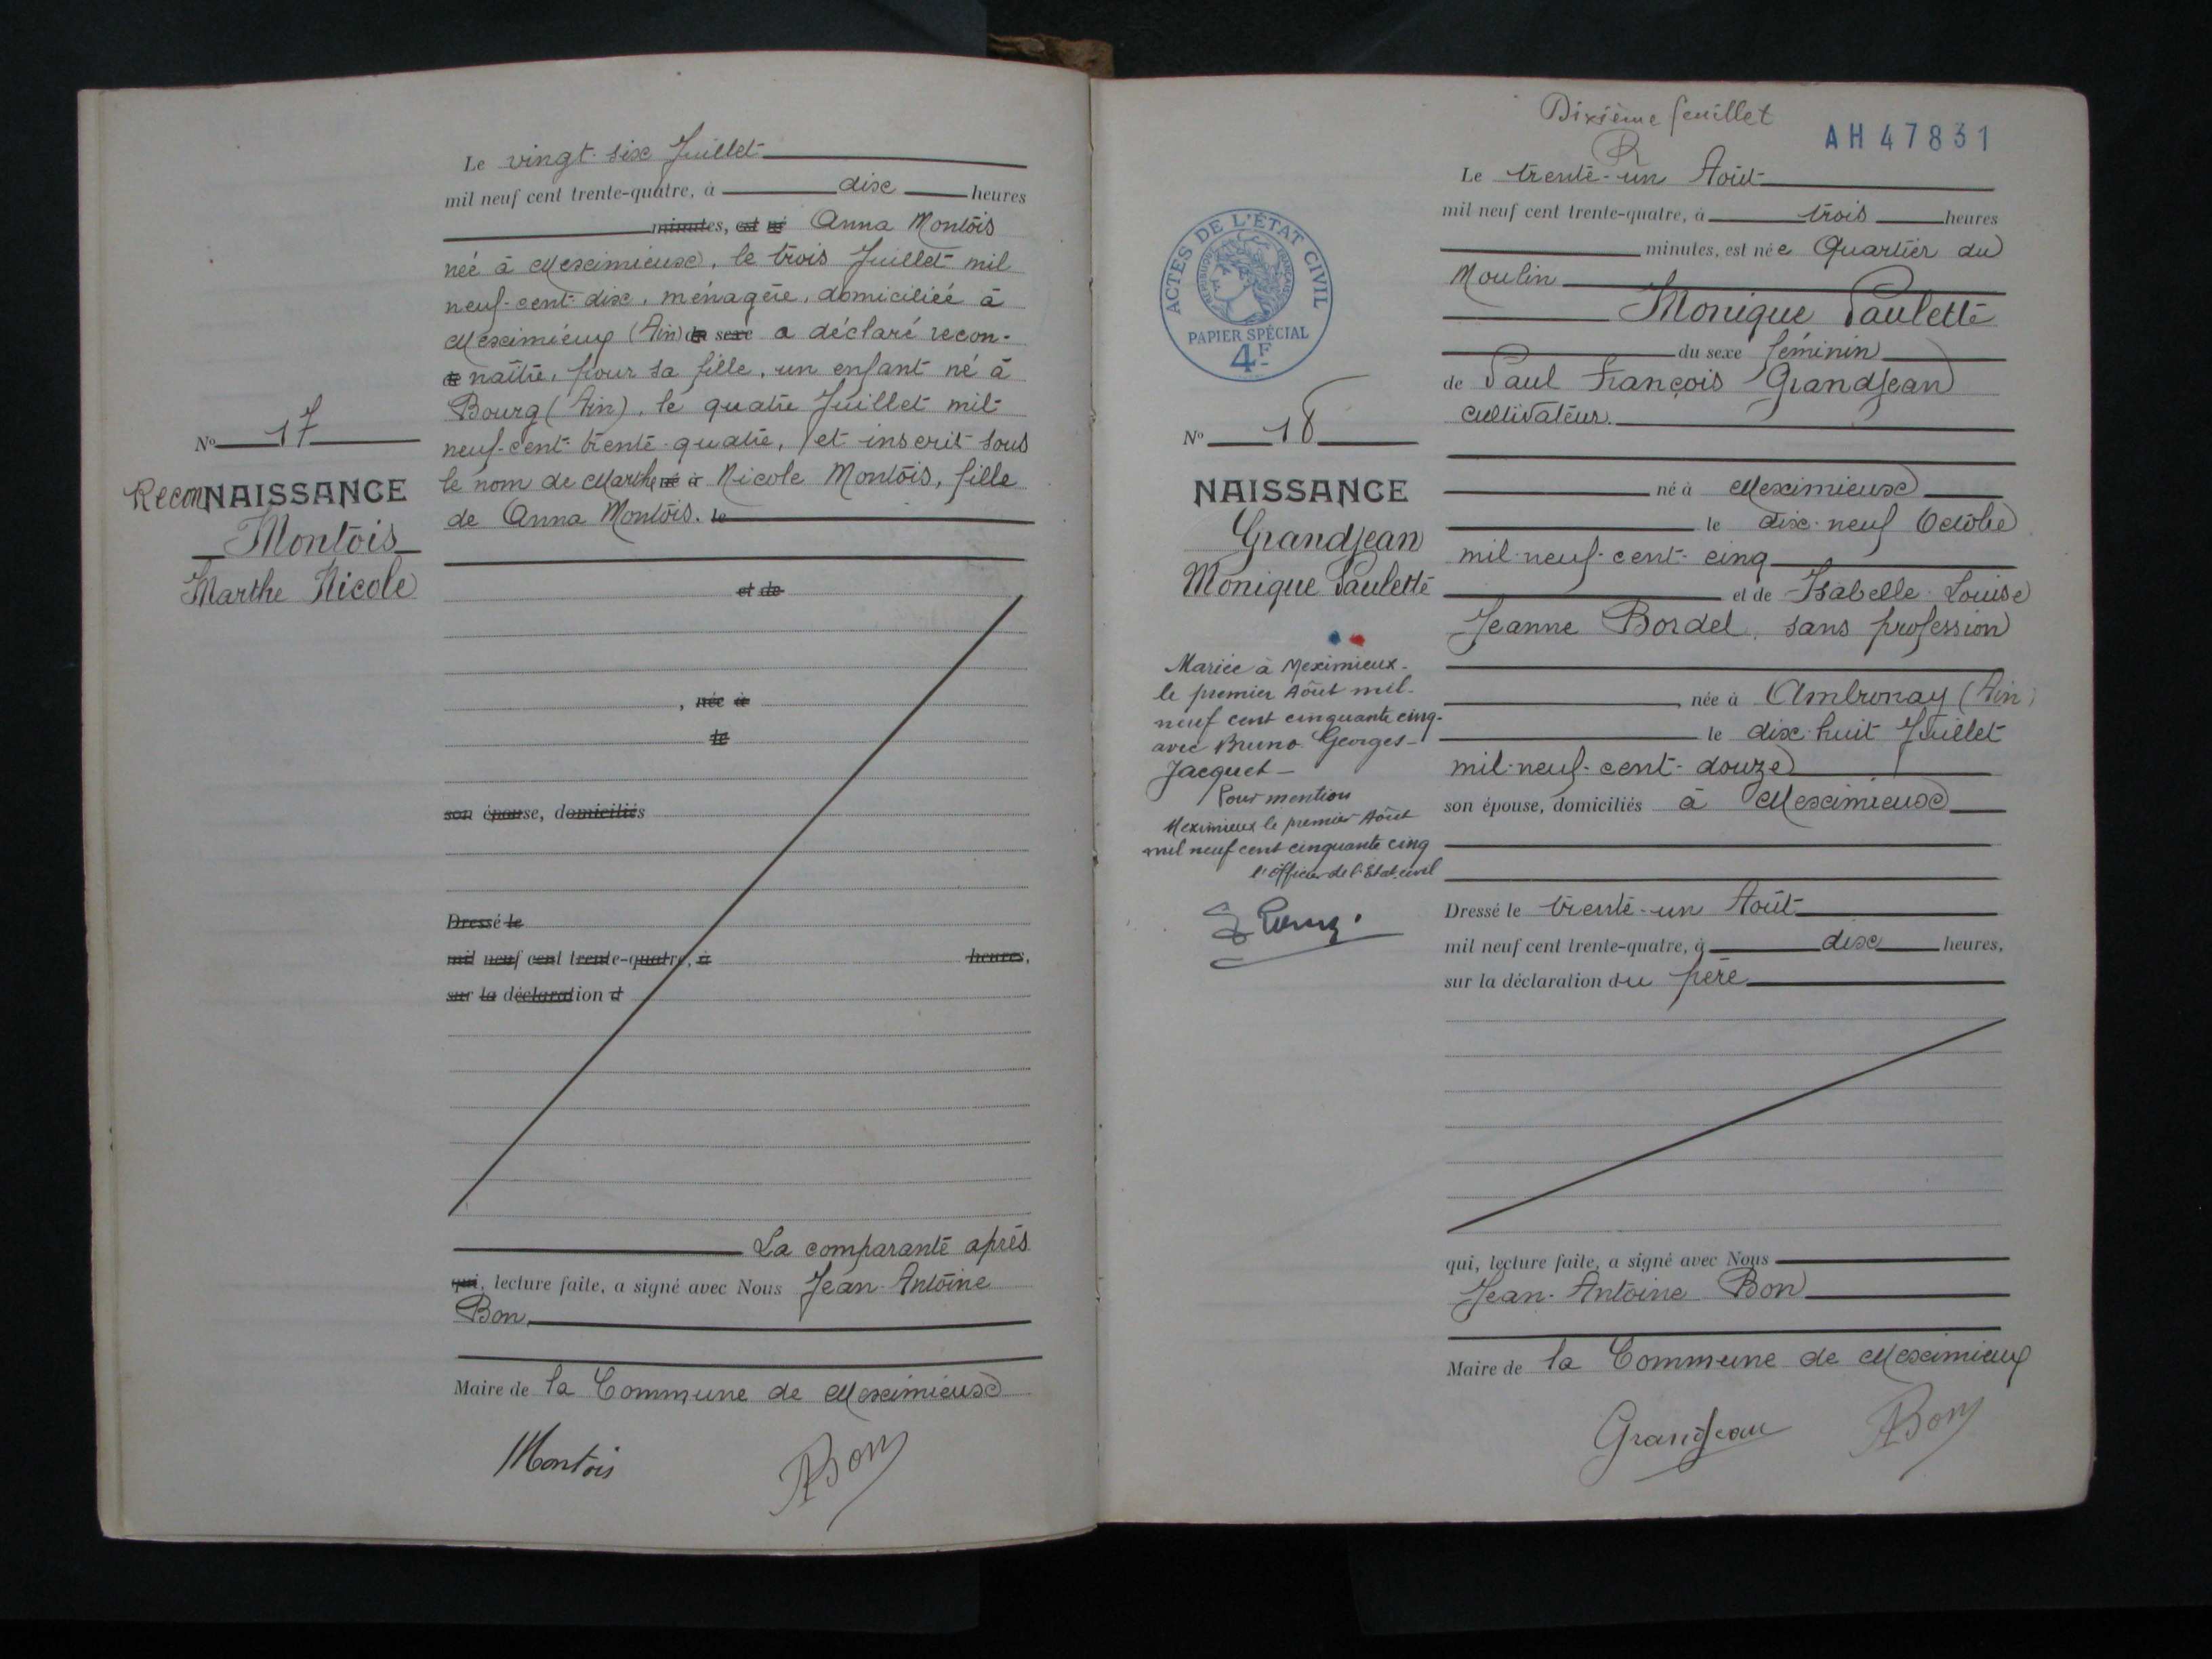 Le vingt-six Juillet
mil neuf cent trente-quatre, à dix heures
minutes, est né Anna Montois
née à Meximieux, le trois Juillet mil
neuf-cent-dix, ménagère, domiciliée à
Meximieux (Ain) du sexe a déclaré recon-
de naître, pour sa fille, un enfant né à
Bourg (Ain), le quatre Juillet mil
neuf-cent-trente-quatre, et inscrit sous
le nom de Marthe né à Nicole Montois, fille
de Anna Montois. le
et de
, née à
le
son épouse, domiciliés
Dressé le
mil neuf cent trente-quatre, à heures,
sur la déclaration d
La comparante après
qui, lecture faite, a signé avec Nous Jean-Antoine
Bon,
Maire de la Commune de Meximieux
Montois
ABon
No 17
ReconNAISSANCE
Montois
Marthe Nicole
Dixième feuillet
AH 47831
ACTES DE L'ÉTAT CIVIL
RÉPUBLIQUE FRANÇAISE
PAPIER SPÉCIAL
4F
No 18
NAISSANCE
Grandjean
Monique Paulette
Mariée à Meximieux-
le premier Août mil-
neuf cent cinquante cinq-
avec Bruno Georges-
Jacquet-
Pour mention
Meximieux le premier Août
mil neuf cent cinquante cinq
l'Officier de l'Etat-civil
Le trente-un Août
mil neuf cent trente-quatre, à trois heures
minutes, est née Quartier du
Moulin
Monique Paulette
du sexe féminin
de Paul François Grandjean
cultivateur.
né à Meximieux
le dix-neuf Octobre
mil-neuf-cent-cinq
et de Isabelle Louise
Jeanne Bordel, sans profession
née à Ambronay (Ain)
le dix-huit Juillet
mil-neuf-cent-douze
son épouse, domiciliés à Meximieux
Dressé le trente-un Août
mil neuf cent trente-quatre, à dix heures,
sur la déclaration du père
qui, lecture faite, a signé avec Nous
Jean-Antoine Bon
Maire de la Commune de Meximieux
Grandjean
ABon